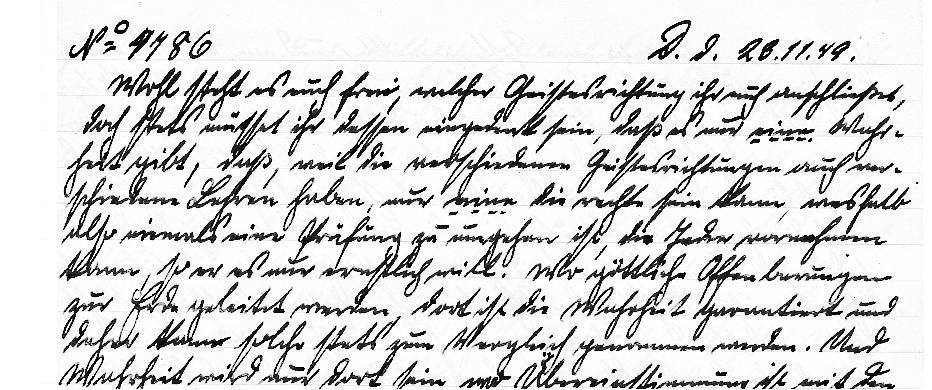 No 4786 D. D. 23.11.49.
Wohl steht es euch frei, welcher Geistesrichtung ihr euch anschließet,
doch stets müsset ihr dessen eingedenk sein, daß es nur eine Wahr-
heit gibt, daß, weil die verschiedenen Geistesrichtungen auch ver-
schiedene Lehren haben, nur eine die rechte sein kann, weshalb
also niemals eine Prüfung zu umgehen ist, die Jeder vornehmen
kann, so er es nur ernstlich will. Wo göttliche Offenbarungen
zur Erde geleitet werden, dort ist die Wahrheit garantiert und
daher kann solche stets zum Vergleich genommen werden. Und
Wahrheit wird nur dort sein, wo Übereinstimmung ist mit den